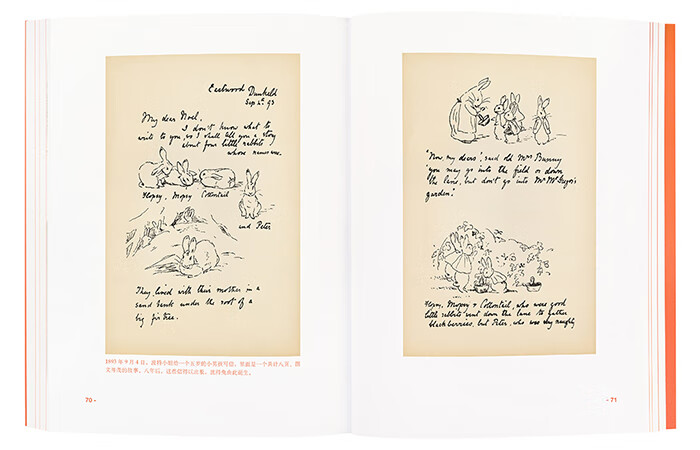 Eastwood Dunkeld
Sep 4th 93
My dear Noel,
I don't know what to
write to you, so I shall tell you a story
about four little rabbits
whose names were
Flopsy, Mopsy Cottontail
and Peter
They lived with their mother in a
sand bank under the root of a
big fir tree.
1893 年 9 月 4 日，波特小姐给一个五岁的小男孩写信，里面是一个共计八页、图
文并茂的故事。八年后，这些信得以
70
"Now, my dears", said old Mrs Bunny
"you may go into the field or down
the lane, but don't go into Mr McGregor's
garden."
Flopsy, Mopsy & Cottontail, who were good
little rabbits went down the lane to gather
blackberries, but Peter, who was very naughty
71